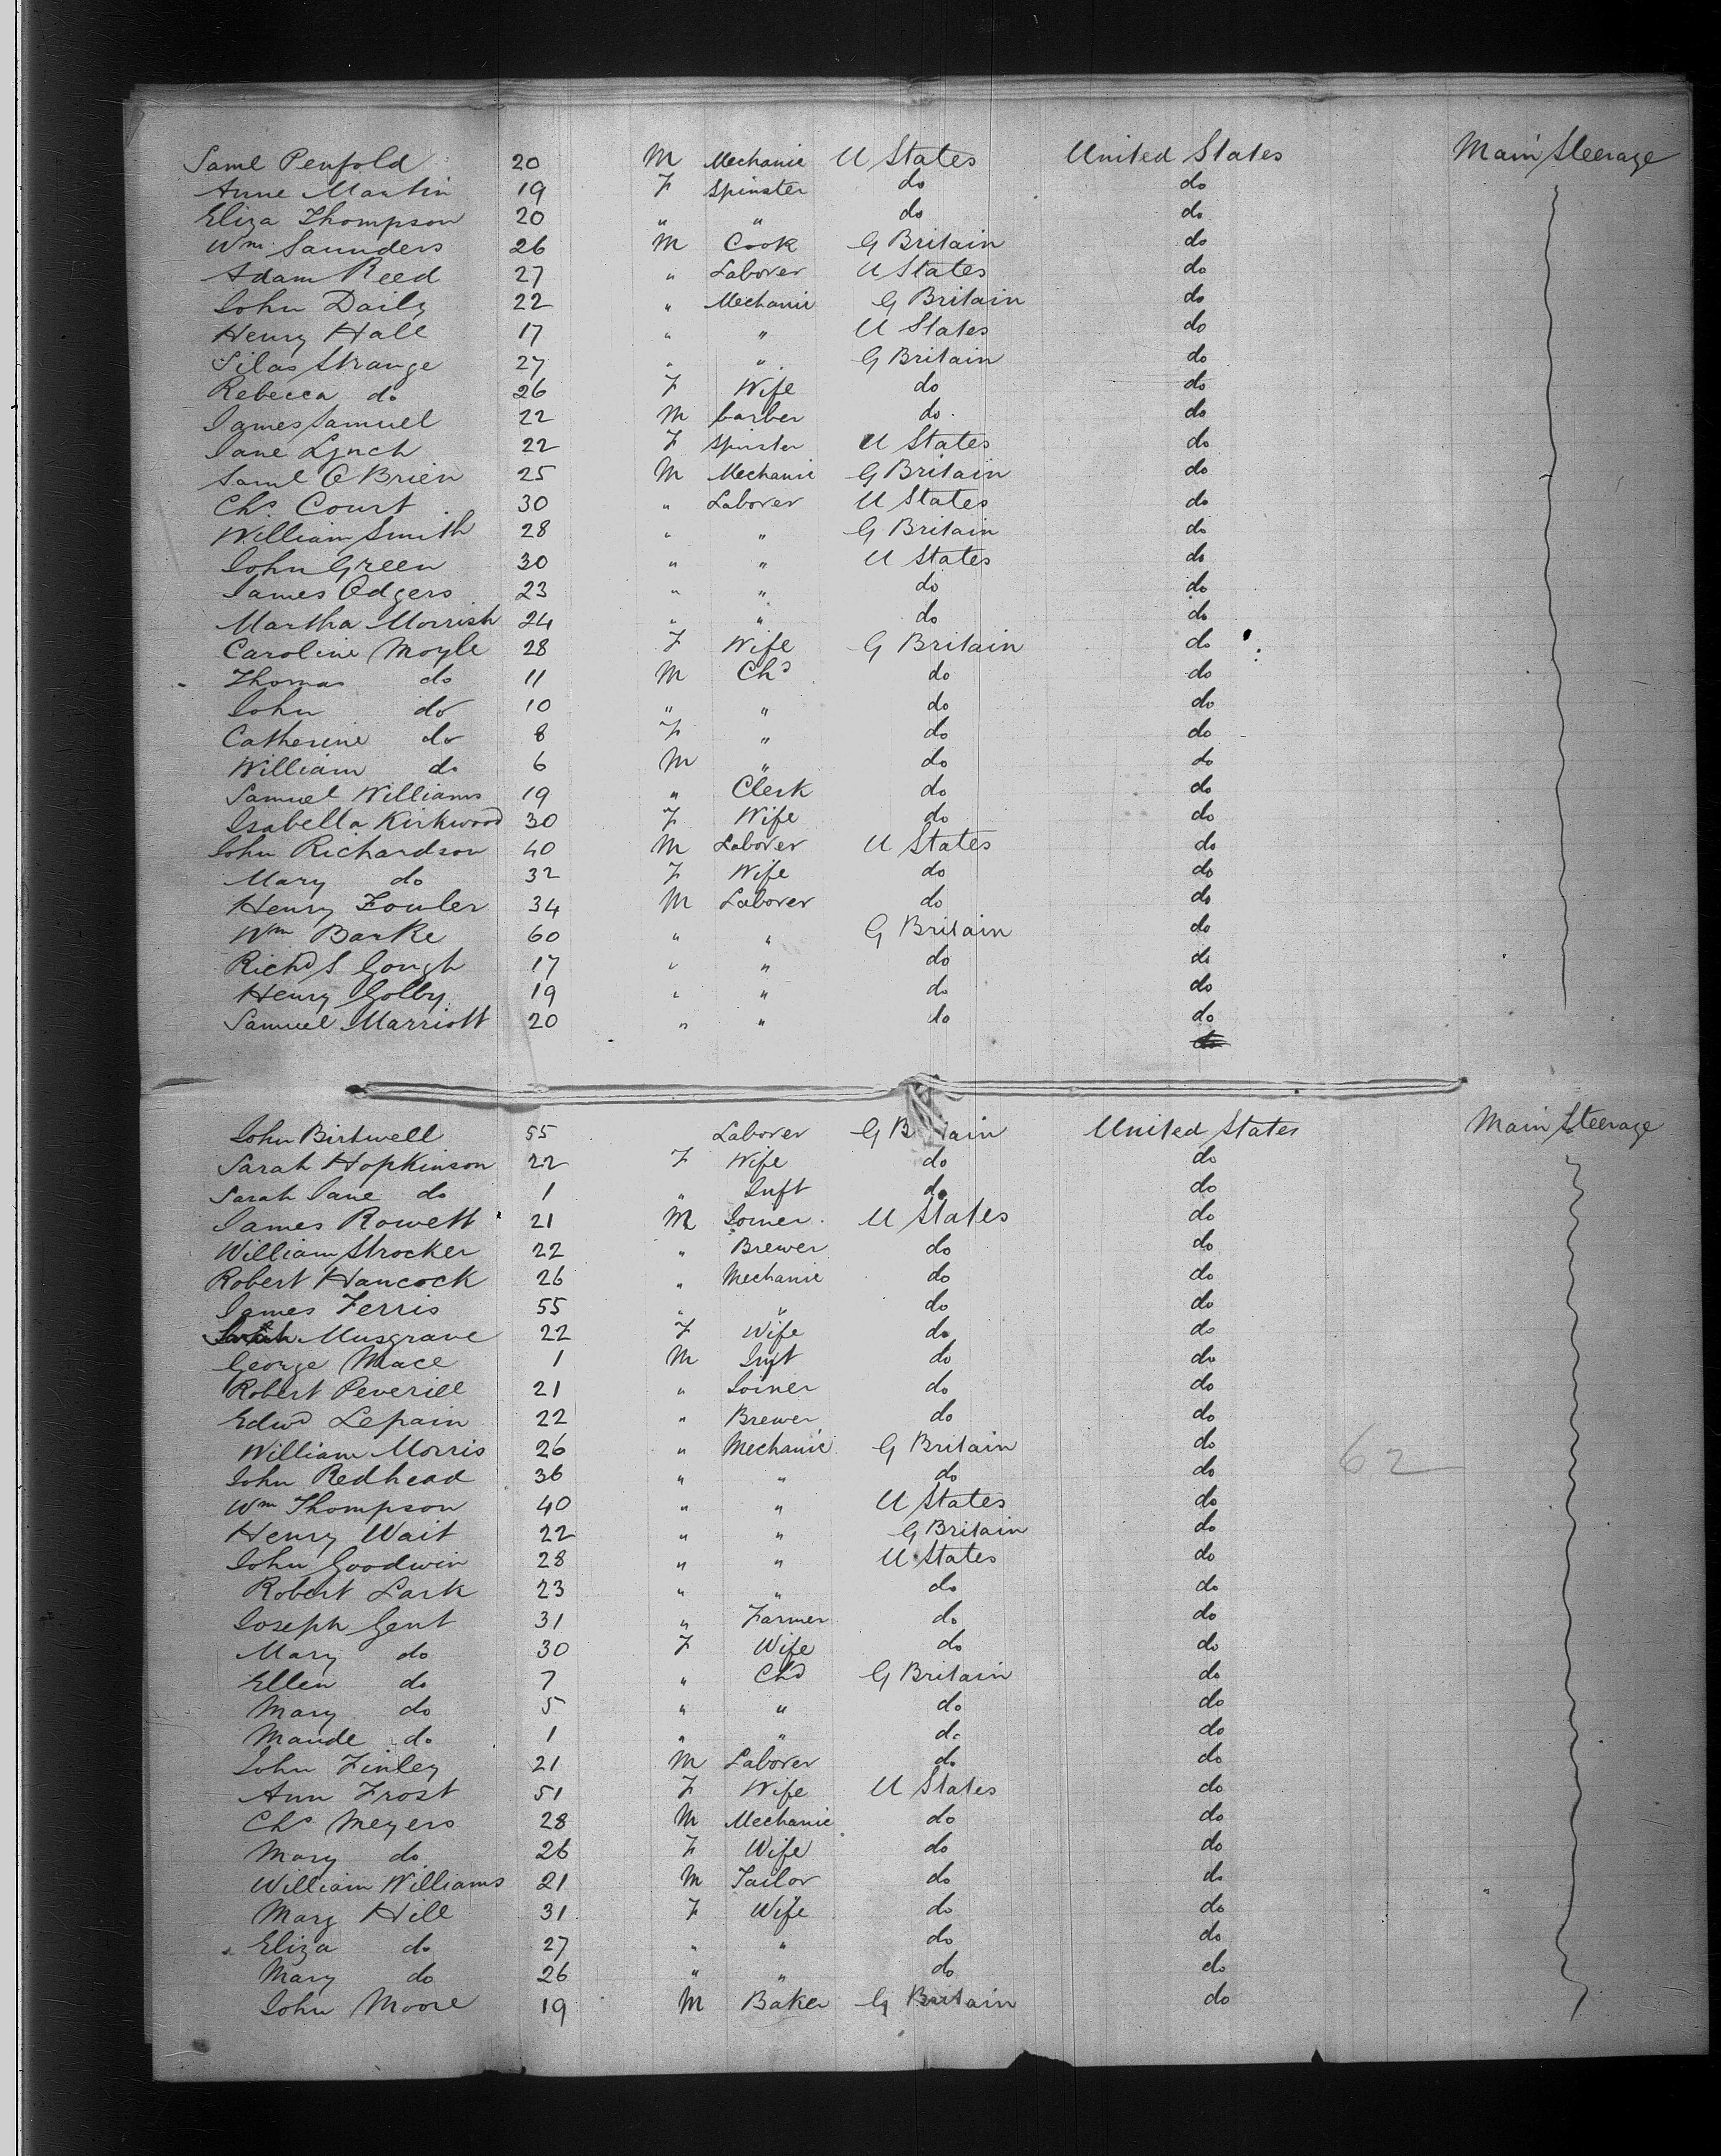 Saml Penfold 20 M Mechanic U States United States Main Steerage
Anne Martin 19 F Spinster do do
Eliza Thompson 20 " " do do
Wm Saunders 26 M Cook G Britain do
Adam Reed 27 " Laborer U States do
John Daily 22 " Mechanic G Britain do
Henry Hall 17 " " U States do
Silas Strange 27 " " G Britain do
Rebecca do 26 F Wife do do
James Samuel 22 M barber do do
Jane Lynch 22 F Spinster U States do
Saml O Brien 25 M Mechanic G Britain do
Chs Court 30 " Laborer U States do
William Smith 28 " " G Britain do
John Green 30 " " U States do
James Odgers 23 " " do do
Martha Morrish 24 " " do do
Caroline Moyle 28 F Wife G Britain do
Thomas do 11 M Chd do do
John do 10 " " do do
Catherine do 8 F " do do
William do 6 M " do do
Samuel Williams 19 " Clerk do do
Isabella Kirkwood 30 F Wife do do
John Richardson 40 M Laborer U States do
Mary do 32 F Wife do do
Henry Fowler 34 M Laborer do do
Wm Barke 60 " " G Britain do
Richd S Gough 17 " " do do
Henry Golby 19 " " do do
Samuel Marriott 20 " " do do
do
John Birtwell 55 Laborer G Britain United States Main Steerage
Sarah Hopkinson 22 F Wife do do
Sarah Jane do 1 " Inft do do
James Rowett 21 M Joiner U States do
William Strocker 22 " Brewer do do
Robert Hancock 26 " Mechanic do do
James Ferris 55 " " do do
Sarah Musgrave 22 F Wife do do
George Mace 1 M Inft do do
Robert Peverill 21 " Joiner do do
Edwd Lepain 22 " Brewer do do
William Morris 26 " Mechanic G Britain do 62
John Redhead 36 " " do do
Wm Thompson 40 " " U States do
Henry Wait 22 " " G Britain do
John Goodwin 28 " " U States do
Robert Lark 23 " " do do
Joseph Gent 31 " Farmer do do
Mary do 30 F Wife do do
Ellen do 7 " Chd G Britain do
Mary do 5 " " do do
Maude do 1 " " do do
John Finley 21 M Laborer do do
Ann Frost 51 F Wife U States do
Chs Meyers 28 M Mechanic do do
Mary do 26 F Wife do do
William Williams 21 M Tailor do do
Mary Hill 31 F Wife do do
Eliza do 27 " " do do
Mary do 26 " " do do
John Moore 19 M Baker G Britain do